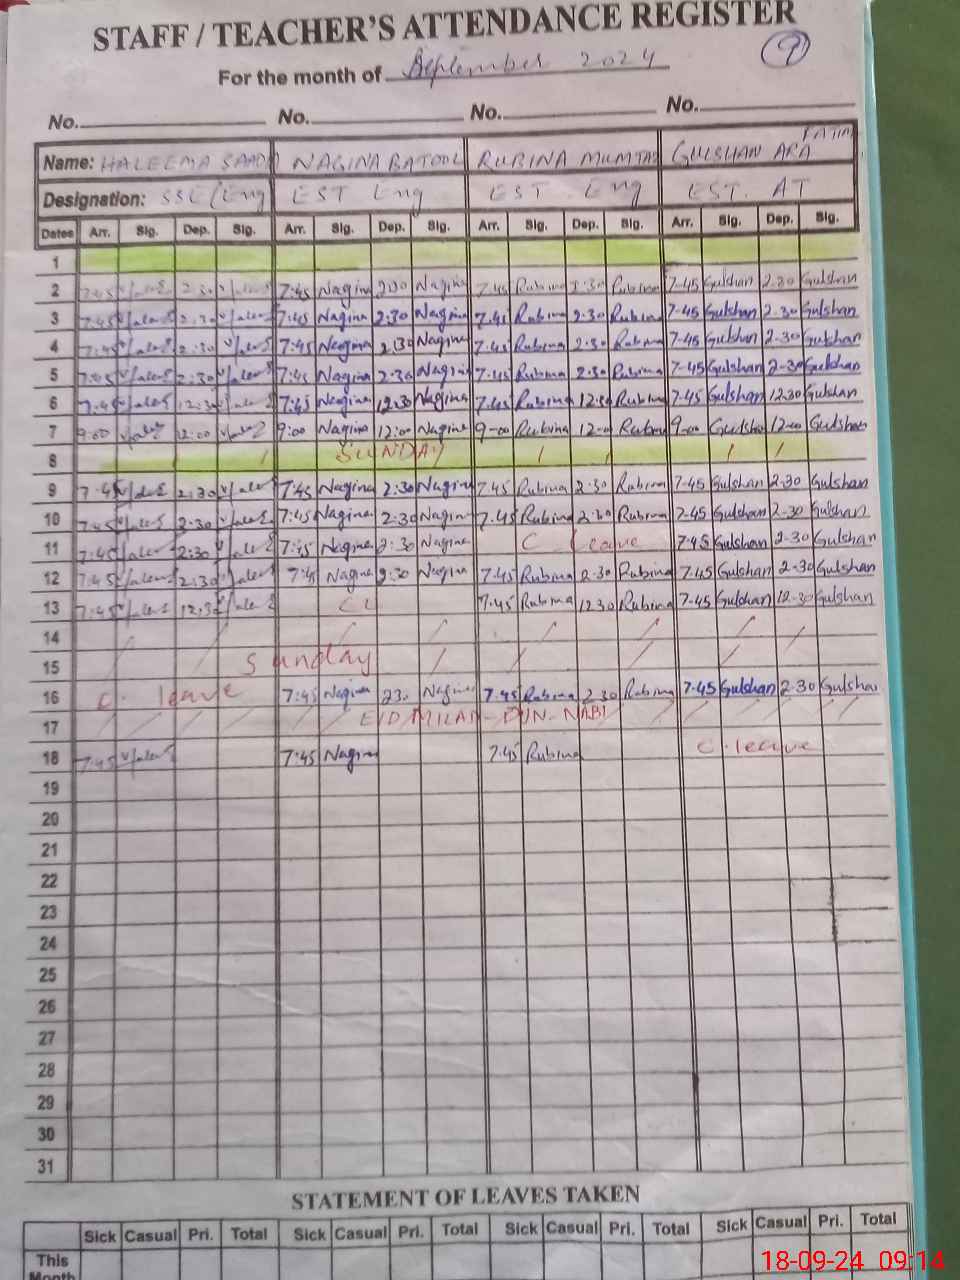 STAFF / TEACHER'S ATTENDANCE REGISTER
For the month of September 2024 9
No. No. No. No.
Name: HALEEMA SAADIA NAGINA BATOOL RUBINA MUMTAZ GULSHAN ARA FATIM
Designation: SSE/Eng EST Eng EST Eng EST. AT
Dates Arr. Sig. Dep. Sig. Arr. Sig. Dep. Sig. Arr. Sig. Dep. Sig. Arr. Sig. Dep. Sig.
1
2 7:45 2:30 7:45 Nagina 2:30 Nagina 7.45 Rubina 2:30 Rubina 7-45 Gulshan 2.30 Gulshan
3 7:45 2:30 7:45 Nagina 2:30 Nagina 7.45 Rubina 2.30 Rubina 7-45 Gulshan 2.30 Gulshan
4 7:45 2:30 7:45 Nagina 2:30 Nagina 7.45 Rubina 2.30 Rubina 7-45 Gulshan 2-30 Gulshan
5 7:45 2:30 7:45 Nagina 2:30 Nagina 7.45 Rubina 2.30 Rubina 7-45 Gulshan 2-30 Gulshan
6 7:45 12:30 7:45 Nagina 12:30 Nagina 7.45 Rubina 12:30 Rubina 7-45 Gulshan 12.30 Gulshan
7 9:00 12:00 9:00 Nagina 12:00 Nagina 9-00 Rubina 12-00 Rubina 9-00 Gulshan 12-00 Gulshan
8 SUNDAY
9 7:45 2:30 7:45 Nagina 2:30 Nagina 7.45 Rubina 2.30 Rubina 7-45 Gulshan 2-30 Gulshan
10 7:45 2:30 7:45 Nagina 2:30 Nagina 7.45 Rubina 2.30 Rubina 7-45 Gulshan 2-30 Gulshan
11 7:45 2:30 7:45 Nagina 2:30 Nagina C leave 7-45 Gulshan 2-30 Gulshan
12 7:45 2:30 7:45 Nagina 2:30 Nagina 7.45 Rubina 2-30 Rubina 7-45 Gulshan 2-30 Gulshan
13 7:45 12:30 CL 7.45 Rubina 12.30 Rubina 7-45 Gulshan 12-30 Gulshan
14
15 Sunday
16 C. leave 7:45 Nagina 2.30 Nagina 7.45 Rubina 2.30 Rubina 7-45 Gulshan 2-30 Gulshan
17 EID MILAD-DUN-NABI
18 7:45 7:45 Nagina 7.45 Rubina C. leave
19
20
21
22
23
24
25
26
27
28
29
30
31
STATEMENT OF LEAVES TAKEN
Sick Casual Pri. Total Sick Casual Pri. Total Sick Casual Pri. Total Sick Casual Pri. Total
This
Month
18-09-24 09:14